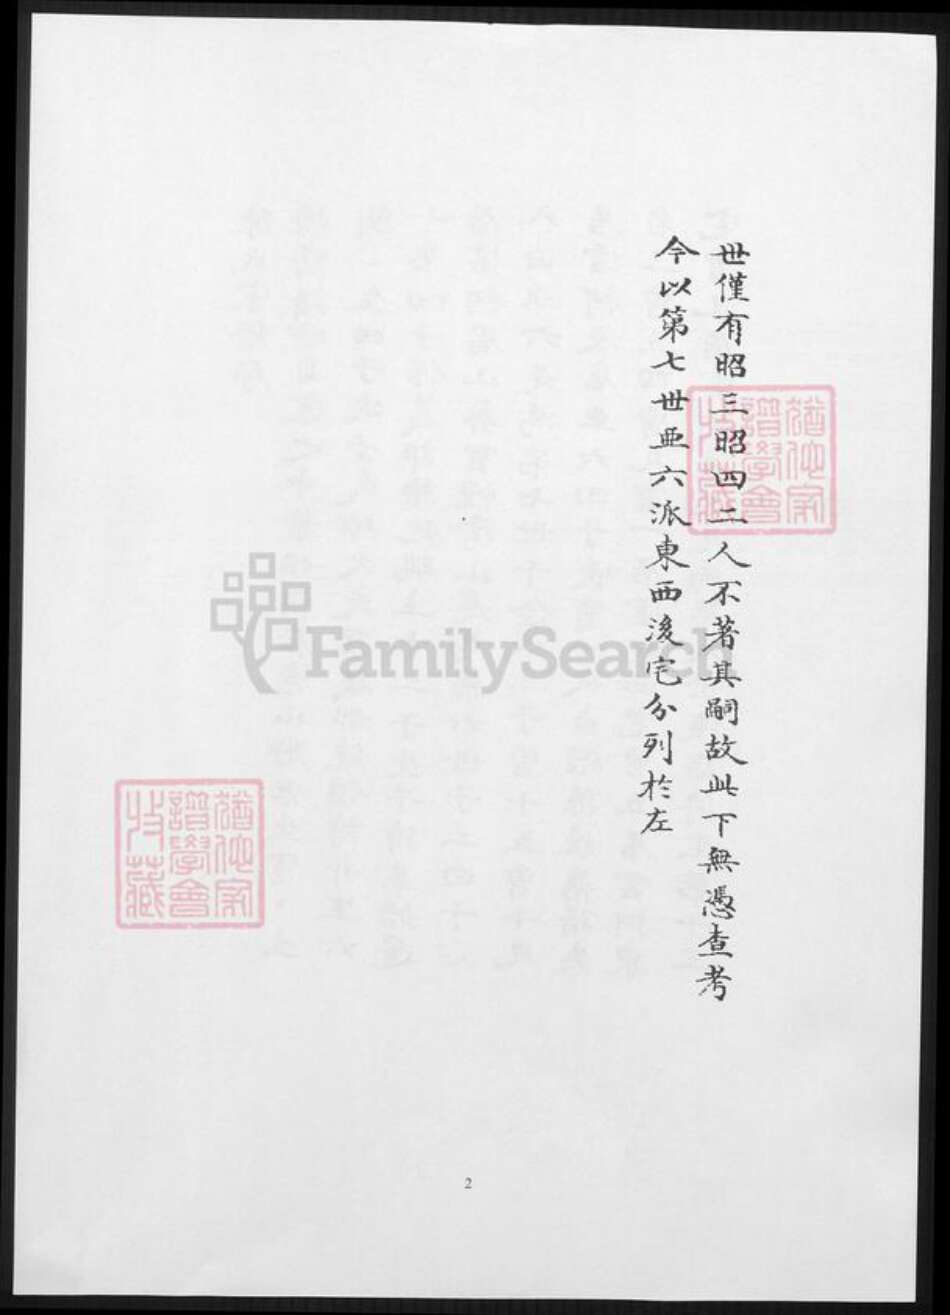 世僅有昭三昭四二人不著其嗣故此下無憑查考
今以第七世亞六派東西後宅分列於左
猶他家
譜學會
收藏
FamilySearch
猶他家
譜學會
收藏
2